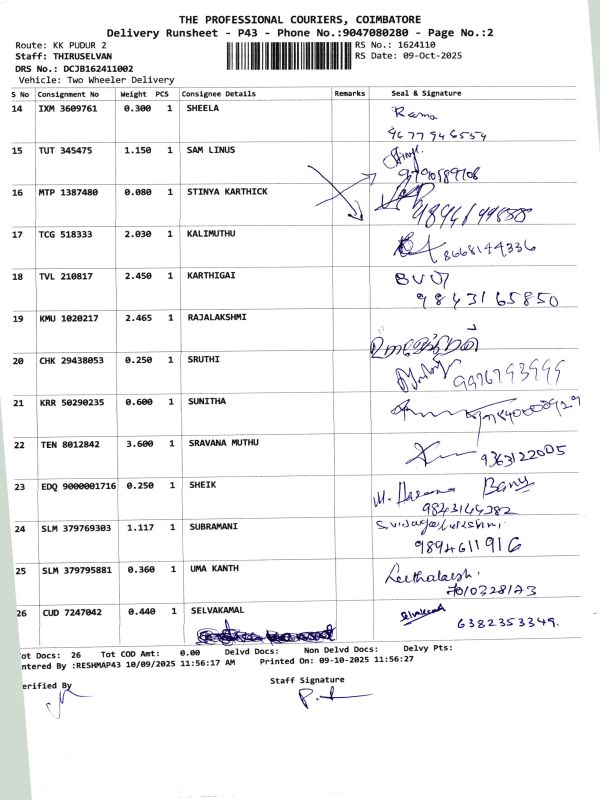 THE PROFESSIONAL COURIERS, COIMBATORE
Delivery Runsheet - P43 - Phone No.:9047080280 - Page No.:2
Route: KK PUDUR 2 RS No.: 1624110
Staff: THIRUSELVAN RS Date: 09-Oct-2025
DRS No.: DCJB162411002
Vehicle: Two Wheeler Delivery
S No Consignment No Weight PCS Consignee Details Remarks Seal & Signature
14 IXM 3609761 0.300 1 SHEELA Rama
9677946554
15 TUT 345475 1.150 1 SAM LINUS
16 MTP 1387480 0.080 1 STINYA KARTHICK
17 TCG 518333 2.030 1 KALIMUTHU 8668144336
18 TVL 210817 2.450 1 KARTHIGAI
9843165850
19 KMU 1020217 2.465 1 RAJALAKSHMI
20 CHK 29438053 0.250 1 SRUTHI
21 KRR 50290235 0.600 1 SUNITHA
22 TEN 8012842 3.600 1 SRAVANA MUTHU
9363122005
23 EDQ 9000001716 0.250 1 SHEIK M. Hasana Banu
9843144382
24 SLM 379769303 1.117 1 SUBRAMANI S. vijayalakshmi
9894611916
25 SLM 379795881 0.360 1 UMA KANTH
26 CUD 7247042 0.440 1 SELVAKAMAL
6382353349.
ot Docs: 26 Tot COD Amt: 0.00 Delvd Docs: Non Delvd Docs: Delvy Pts:
ntered By :RESHMAP43 10/09/2025 11:56:17 AM Printed On: 09-10-2025 11:56:27
erified By Staff Signature